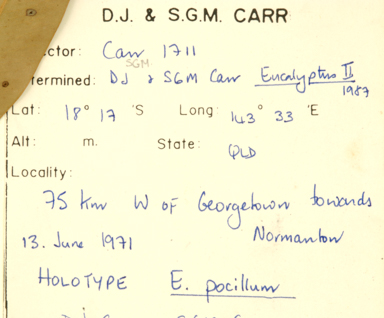 D.J. & S.G.M. CARR
ctor: Carr 1711
SGM
termined: DJ & SGM Carr Eucalyptus II
1987
Lat: 18° 17 'S Long: 143° 33 'E
Alt: m. State: QLD
Locality:
75 km W OF Georgetown towards
Normanton
13. June 1971
HOLOTYPE E. pocillum